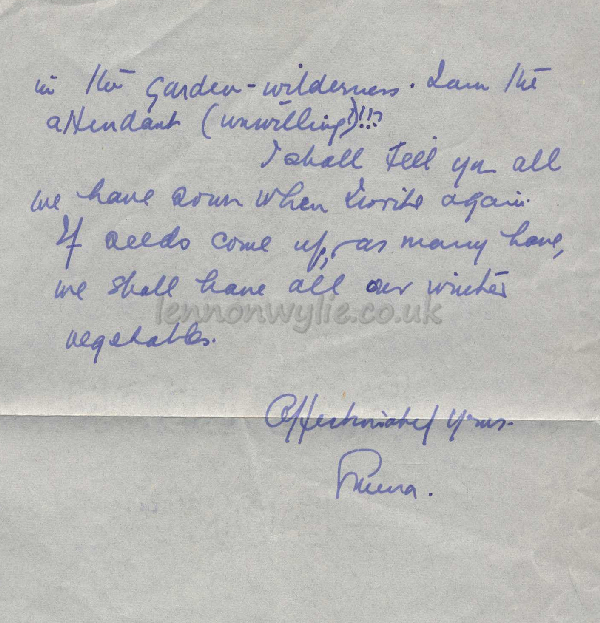 in the garden-wilderness. I am the
attendant (unwilling!)!!?
I shall tell you all
we have sown when I write again.
If seeds come up, as many have,
we shall have all our winter
lennonwylie.co.uk
vegetables.
Affectionately Yours.